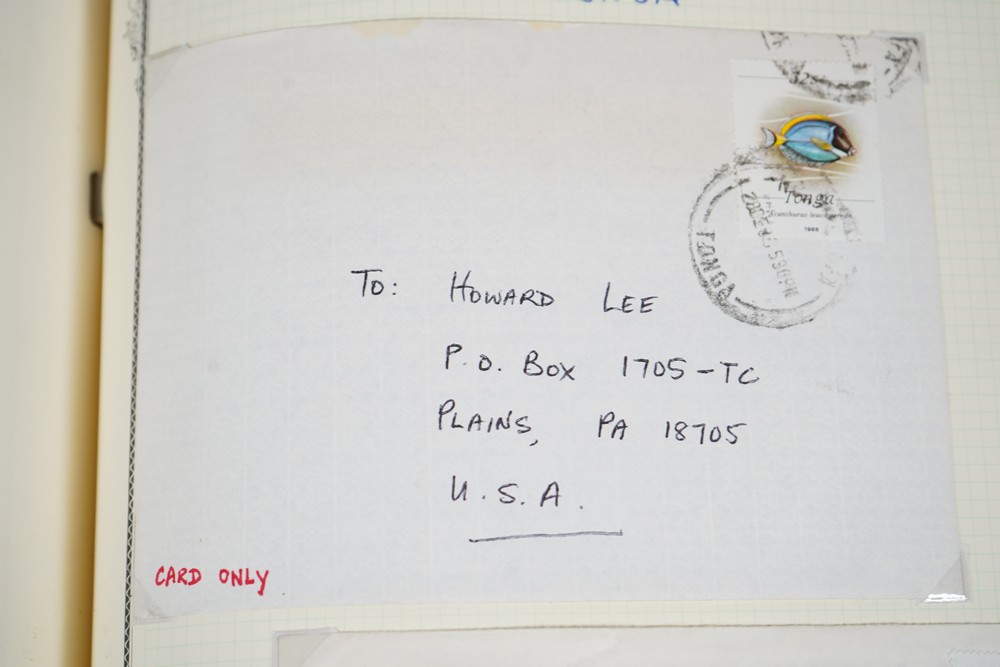 Tonga
TONGA
530PM
To: HOWARD LEE
P.O. BOX 1705-TC
PLAINS, PA 18705
U.S.A.
CARD ONLY